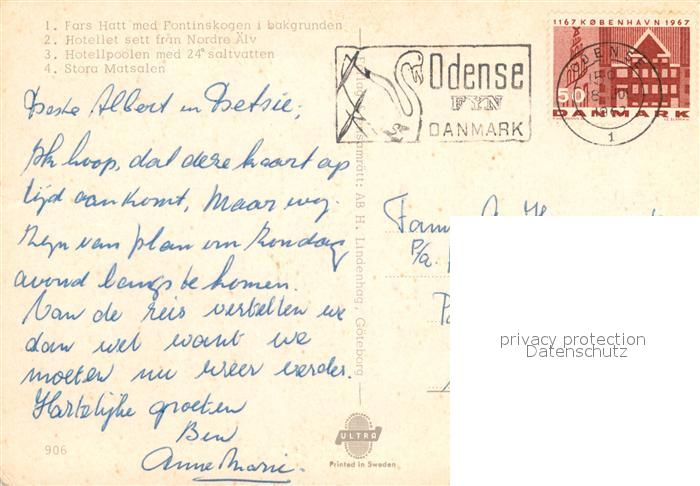 1. Fars Hatt med Fontinskogen i bakgrunden
2. Hotellet sett från Nordre Älv
3. Hotellpoolen med 24° saltvatten
4. Stora Matsalen
Beste Albert en Betsie,
Ik hoop, dat deze kaart op
tijd aankomt, Maar wij
zijn van plan om Zondag
avond langs te komen.
Van de reis vertellen we
dan wel want we
moeten nu weer verder.
Hartelijke groeten
Ben
Anne Marie.
906
AB. H. Lindenhag, Göteborg
ULTRA
Printed in Sweden
Odense
FYN
DANMARK
1167 KØBENHAVN 1967
50
DANMARK
ODENSE
1
Fam.
P/a.
privacy protection
Datenschutz